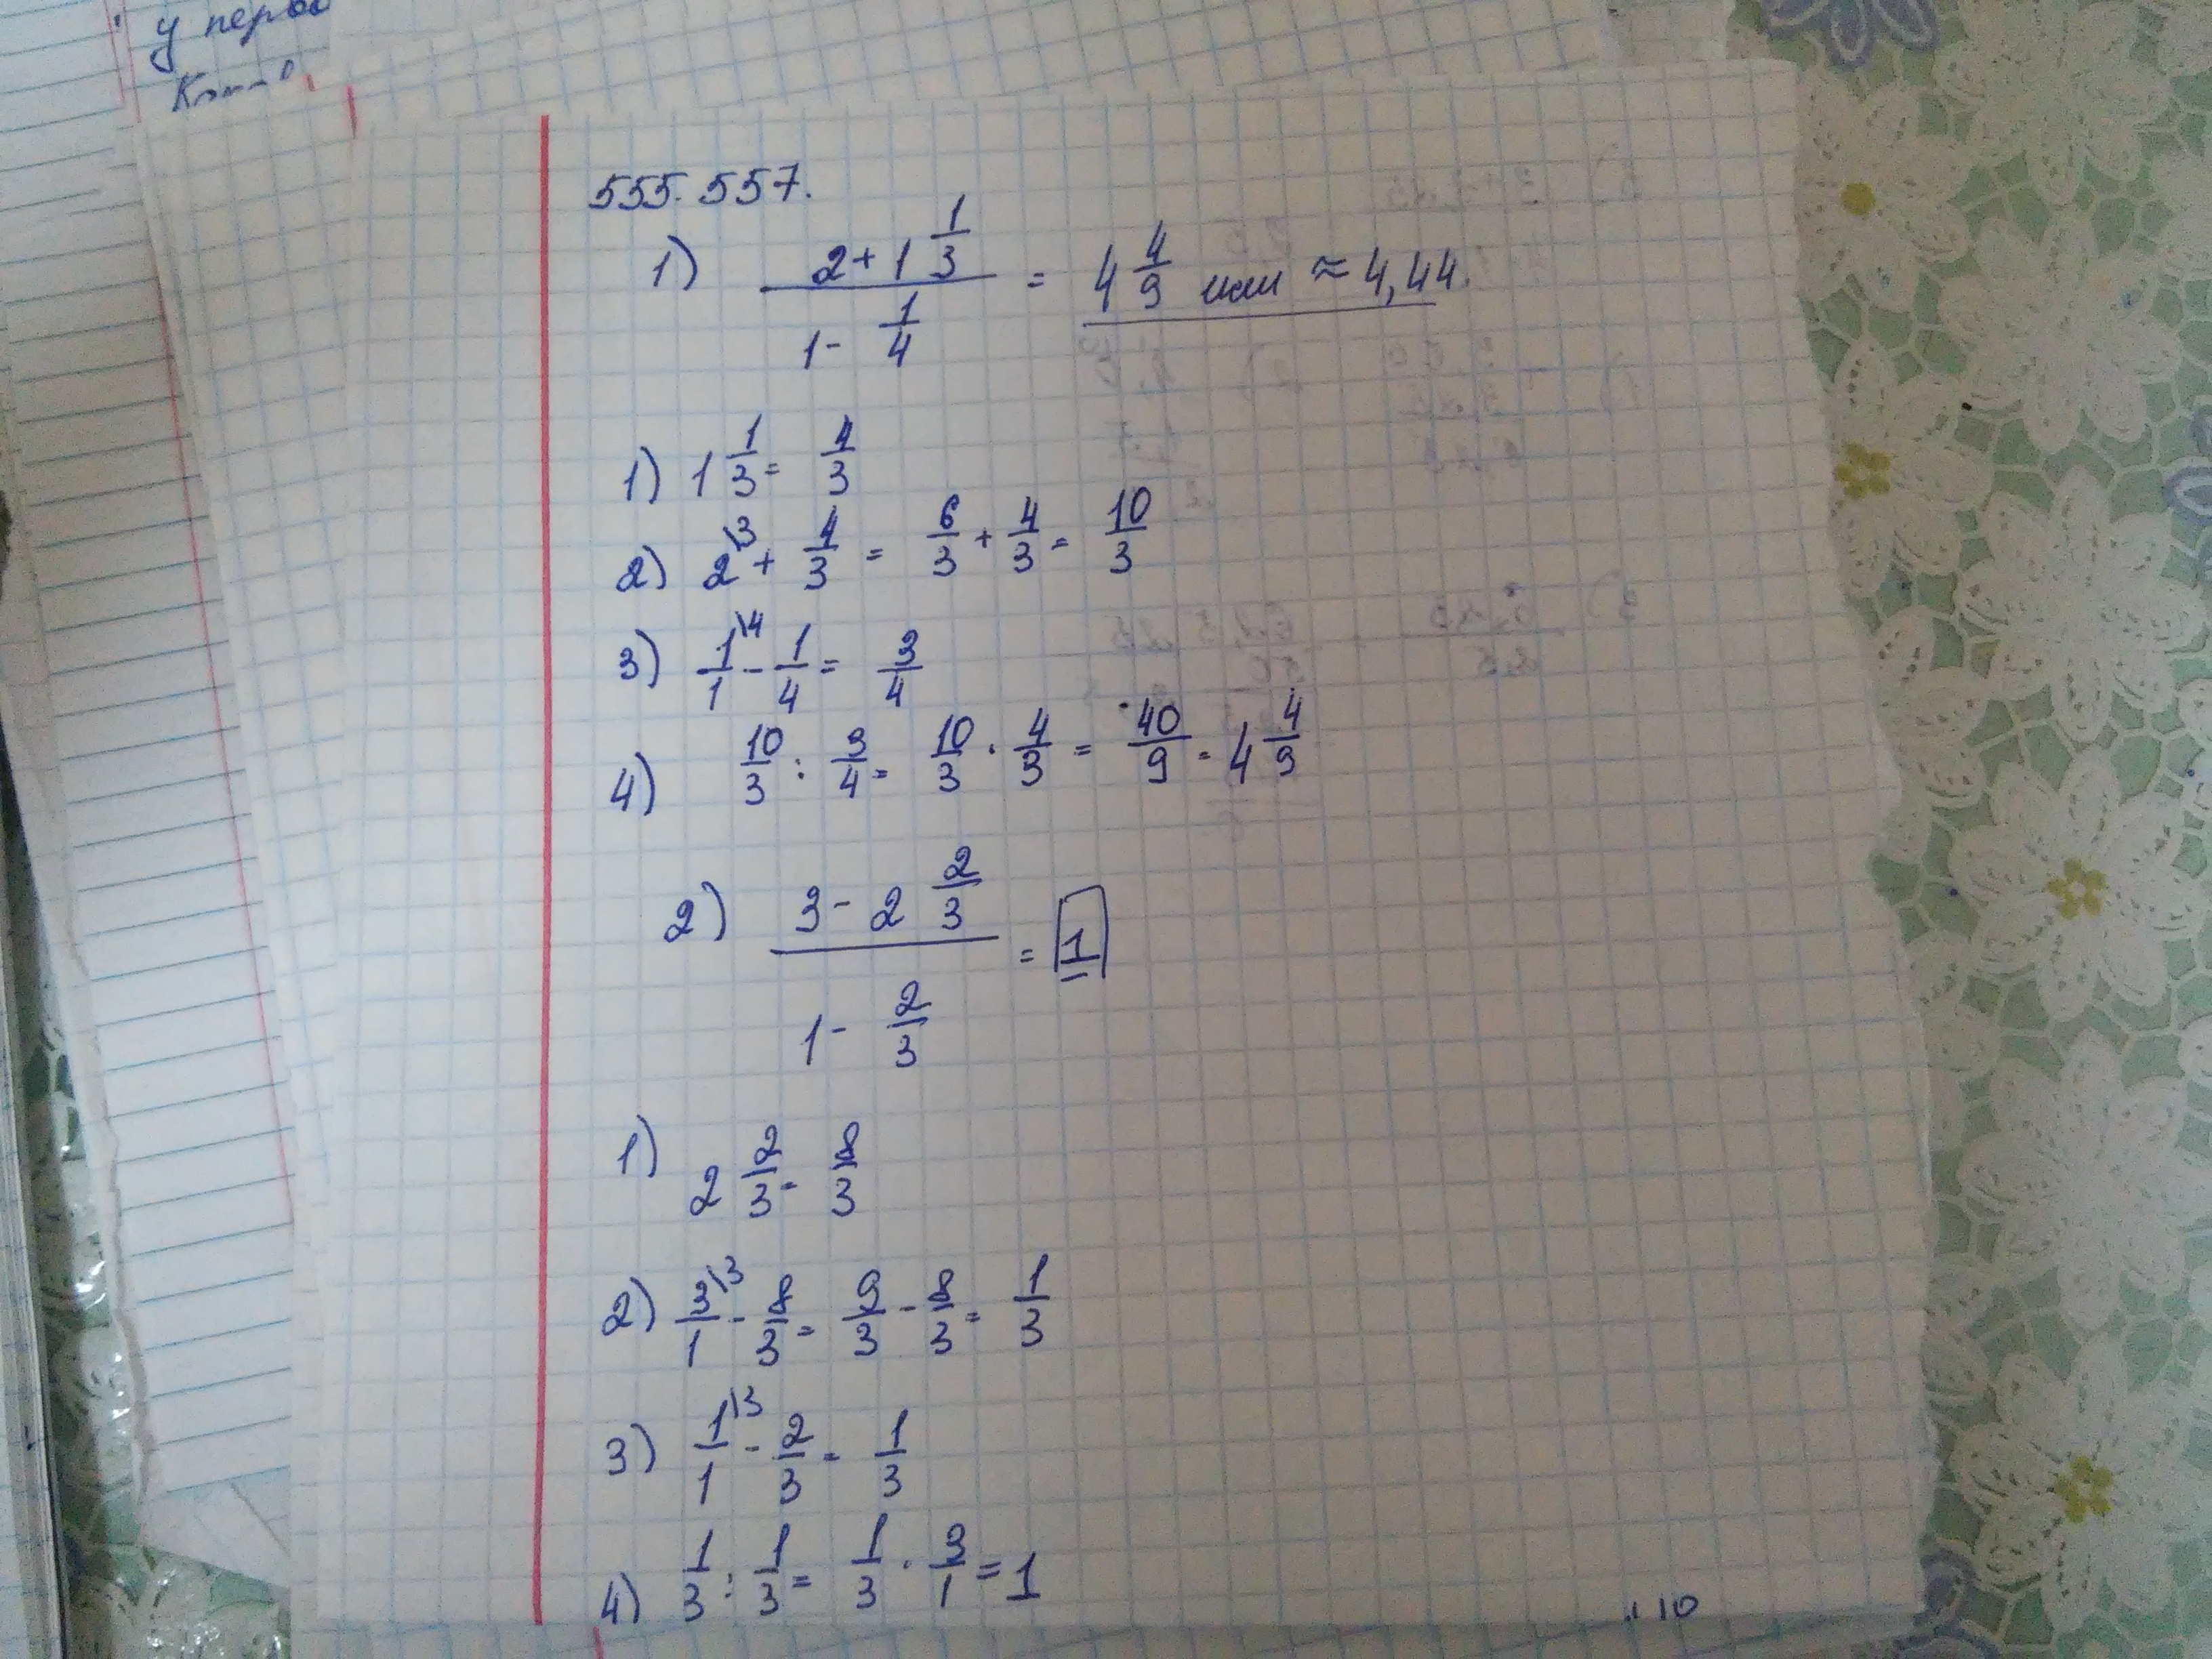 у перво
555. 557.
1) (2 + 1 1/3) / (1 - 1/4) = 4 4/9 или ≈ 4,44.
1) 1 1/3 = 4/3
2) 2\3 + 4/3 = 6/3 + 4/3 = 10/3
3) 1\4/1 - 1/4 = 3/4
4) 10/3 : 3/4 = 10/3 · 4/3 = 40/9 = 4 4/9
2) (3 - 2 2/3) / (1 - 2/3) = 1
1) 2 2/3 = 8/3
2) 3\3/1 - 8/3 = 9/3 - 8/3 = 1/3
3) 1\3/1 - 2/3 = 1/3
4) 1/3 : 1/3 = 1/3 · 3/1 = 1